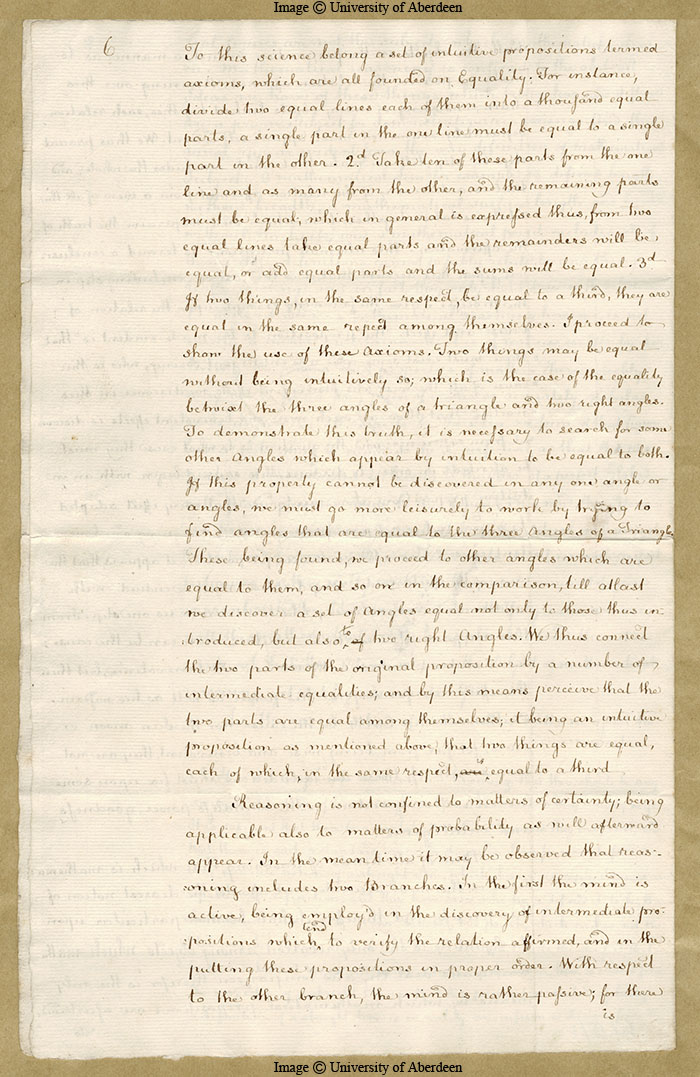 Image © University of Aberdeen
6
To this science belong a set of intuitive propositions termed
axioms, which are all founded on Equality. For instance,
divide two equal lines each of them into a thousand equal
parts, a single part in the one line must be equal to a single
part in the other. 2.d Take ten of these parts from the one
line and as many from the other, and the remaining parts
must be equal; which in general is expressed thus, from two
equal lines take equal parts and the remainders will be
equal, or add equal parts and the sums will be equal. 3d
If two things, in the same respect, be equal to a third, they are
equal in the same repect among themselves. I proceed to
show the use of these Axioms. Two things may be equal
without being intuitively so; which is the case of the equality
betwixt the three angles of a triangle and two right angles.
To demonstrate this truth, it is necessary to search for som
other Angles which appear by intuition to be equal to both.
If this property cannot be discovered in any one angle or
angles, we must go more leisurely to work by trying to
find angles that are equal to the three Angles of a Triangle
These being found, we proceed to other angles which are
equal to them, and so on in the comparison, till atlast
we discover a set of Angles equal not only to those thus in-
troduced, but also to of two right Angles. We thus connect
the two parts of the original proposition by a number of
intermediate equalities; and by this means perceive that the
two parts are equal among themselves; it being an intuitive
proposition as mentioned above, that two things are equal,
each of which, in the same respect, are is equal to a third
Reasoning is not confined to matters of certainty; being
applicable also to matters of probability as will afterward
appear. In the mean time it may be observed that reas-
-oning includes two Branches. In the first the mind is
active, being employ'd in the discovery of intermediate pro-
-positions which tend to verify the relation affirmed, and in the
putting these propositions in proper order. With respect
to the other branch, the mind is rather passive; for there
is
Image © University of Aberdeen